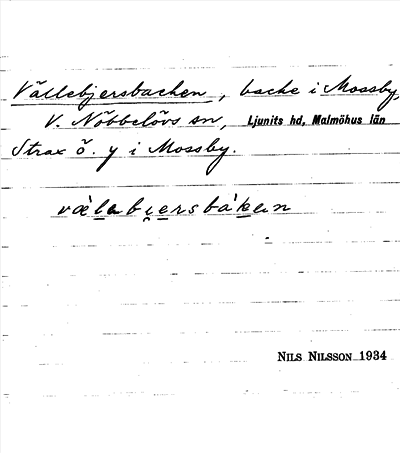 Vällebjersbacken, backe i Mossby,
V. Nöbbelövs sn, Ljunits hd, Malmöhus län
Strax ö. y i Mossby.
NILS NILSSON 1934